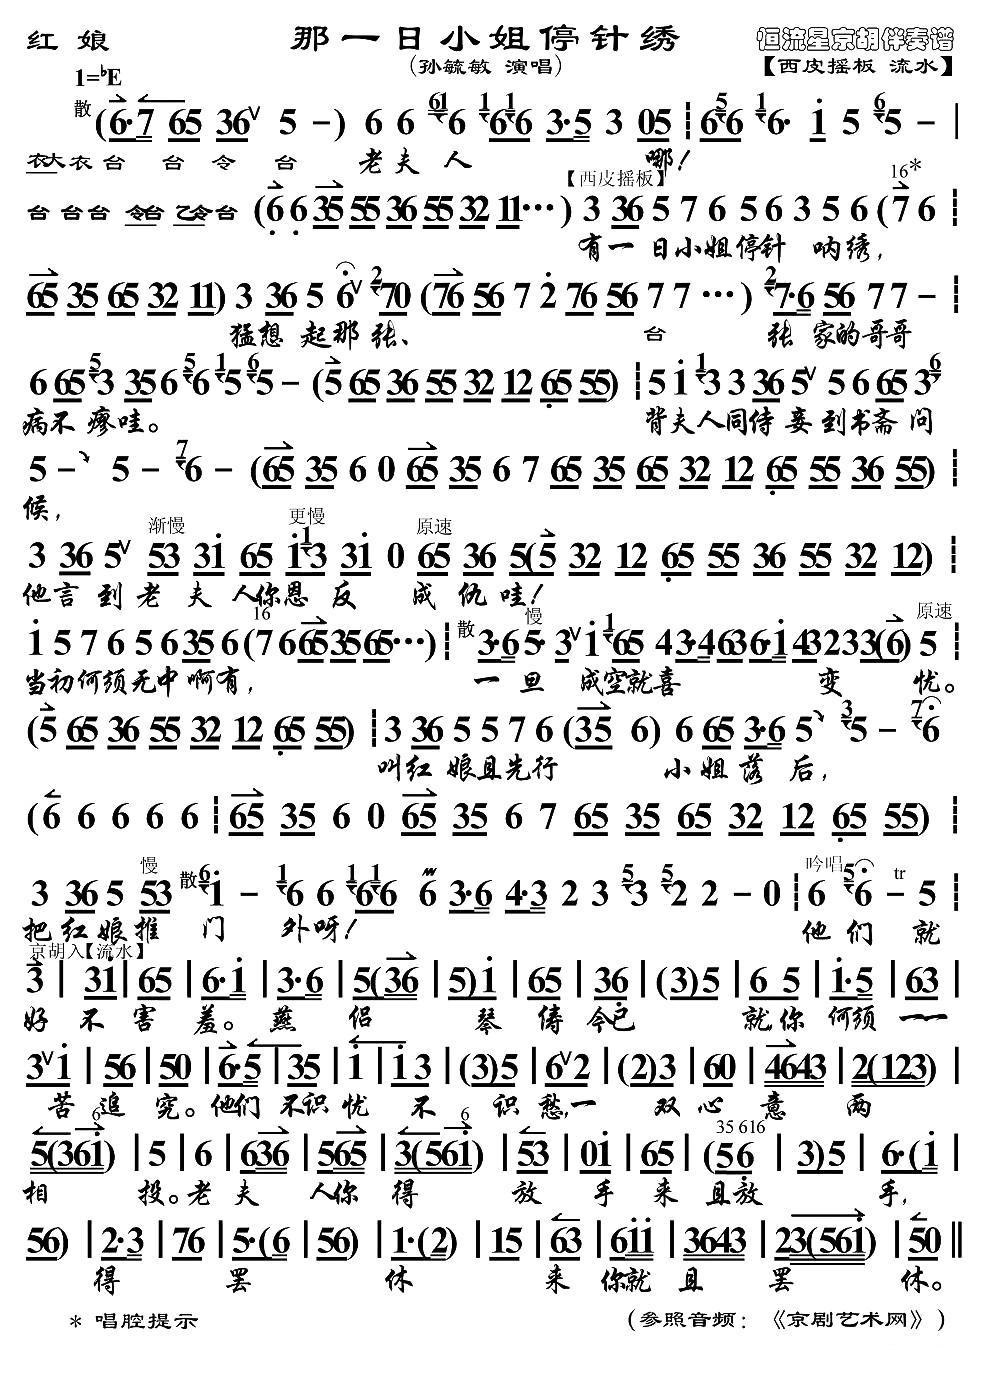 红 娘 那一日小姐停针绣 恒流星京胡伴奏谱
(孙毓敏 演唱) 【西皮摇板 流水】
1=♭E
散 (6·7 65 36 5 -) 6 6 61 6 1 1 66 3·5 3 05 66 5 1 6· 1 5 6 5 -
衣大衣台 台 令 台 老夫人 哪!
【西皮摇板】 16*
台 台台 令台 乙令台 (6 6 35 55 36 55 32 11···) 3 36 5 7 6 5 6 3 5 6 (7 6
有一 日小姐停针 呐绣,
65 35 65 32 11) 3 36 5 6 2 70 (76 56 7 2 76 56 7 7 ···) 2 7·6 56 7 7 -
猛想 起那 张、 台 张 家的哥哥
6 65 5 3 35 6 5 6 1 5 6 5 - (5 65 36 55 32 12 65 55) 5 1 1 3 3 36 5 5 6 65 3 6
病不 瘳哇。 背夫人同侍 妾 到书斋 问
5 - 5 - 7 6 - (65 35 6 0 65 35 6 7 65 35 65 32 12 65 55 36 55)
候,
渐慢 更慢 原速
3 36 5 53 31 65 1 1 3 31 0 65 36 5(5 32 12 65 55 36 55 32 12)
他言 到 老 夫 人你恩 反 成 仇 哇!
16 散 慢 原速
1 5 7 6 5 6 35 6 (7 6 65 35 65···) 3·6 5· 3 1 1 65 43·4636·143233(6) 5
当初何须无中啊有, 一 旦 成空就喜 变 忧。
(5 65 36 55 32 12 65 55) 3 36 5 5 7 6 (35 6) 6 65 3·6 5 3 5 - 7 6
叫红 娘且先行 小 姐 落 后,
(6 6 6 6 6 65 35 6 0 65 35 6 7 65 35 65 32 12 65 55)
慢 散 吟唱 tr
3 36 5 53 6 1 - 1 6 6 1 1 66 6 3·6 4·3 2 3 5 3 5 2 2 - 0 6 5 6 - 5
把 红娘推 门 外呀! 他 们 就
京胡入【流水】
3 | 31 | 65 | 6·1 | 3·6 | 5(36 | 5) 1 | 65 | 36 | (3)5 | 6 5 | 1·5 | 63 |
好 不 害 羞。 燕 侣 琴 俦 今已 就你 何须 一一
3 1 | 56 | 50 | 6·5 | 35 | 1 | 1 3 | (3)5 | 6 2 | (2)3 | 60 | 4643 | 2(123) |
苦 追 究。他们 不识 忧 不 识 愁,一 双 心 意 两
6 6 35 616
5(361) | 5 | 6 | 636 | 565 | 3(561) | 53 | 01 | 65 | (56 | 3)5 | 6·(1 |
相 投。老 夫 人你 得 放 手 来 且放 手,
56) | 2·3 | 76 | 5·(6 | 56) | 1·(2) | 15 | 63 | 611 | 3643 | 23(561) | 50 ‖
得 罢 休 来 你就 且 罢 休。
* 唱腔提示 (参照音频:《京剧艺术网》)